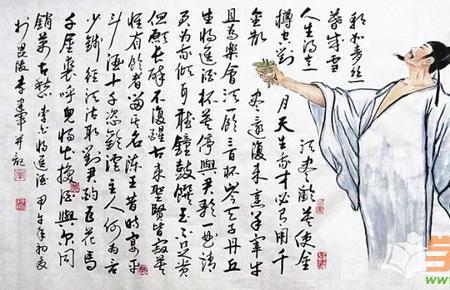 朝如青丝
暮成雪
人生得意
須盡歡莫使金
樽空對月天生我才必有用千
金散盡還復来烹羊宰牛
且為樂會須一飲三百杯岑夫子丹丘
生將進酒杯莫停與君歌一曲請
君為我傾耳聽鐘鼓饌玉不足貴
但願長醉不復醒古来聖賢皆寂寞
惟有飲者留其名陳王昔時宴平
斗酒十千恣歡謔主人何為言
少錢徑須沽取對君酌五花馬
千金裘呼兒將出換美酒與爾同
銷萬古愁 李白將進酒 甲午年初夏
李建軍并記